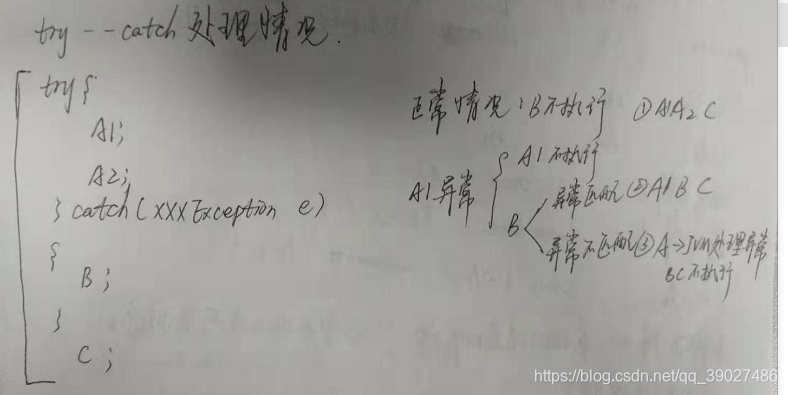 try -- catch 处理情况.
try {
A1;
A2;
} catch (XXXException e)
{
B;
}
C;
正常情况: B不执行 ①A1A2C
A1异常
A1不执行
B
异常匹配②A1BC
异常不匹配③A→JVM处理异常
BC不执行
https://blog.csdn.net/qq_39027486